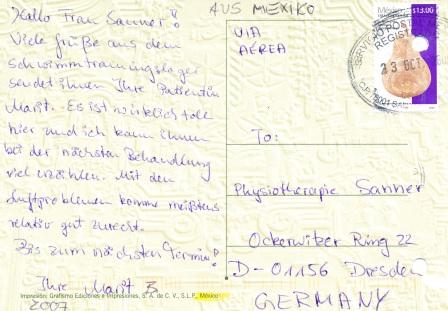 Hallo Frau Sanner!
Viele Grüße aus dem
Schwimmtrainingslager
sendet ihnen Ihre Patientin
Marit. Es ist wirklich toll
hier und ich kann ihnen
bei der nächsten Behandlung
viel erzählen. Mit den
Luftproblemen komme meißtens
relativ gut zurecht.
Bis zum nächsten Termin!
Ihre Marit B.
2007
Impresión: Grafismo Ediciones e Impresiones, S. A. de C. V., S.L.P., México
AUS MEXIKO
VIA
AÉREA
México
$13.00
SERVICIO POSTAL
REGISTR
23 OCT
To:
Physiotherapie Sanner
Ockerwitzer Ring 22
D-01156 Dresden
GERMANY